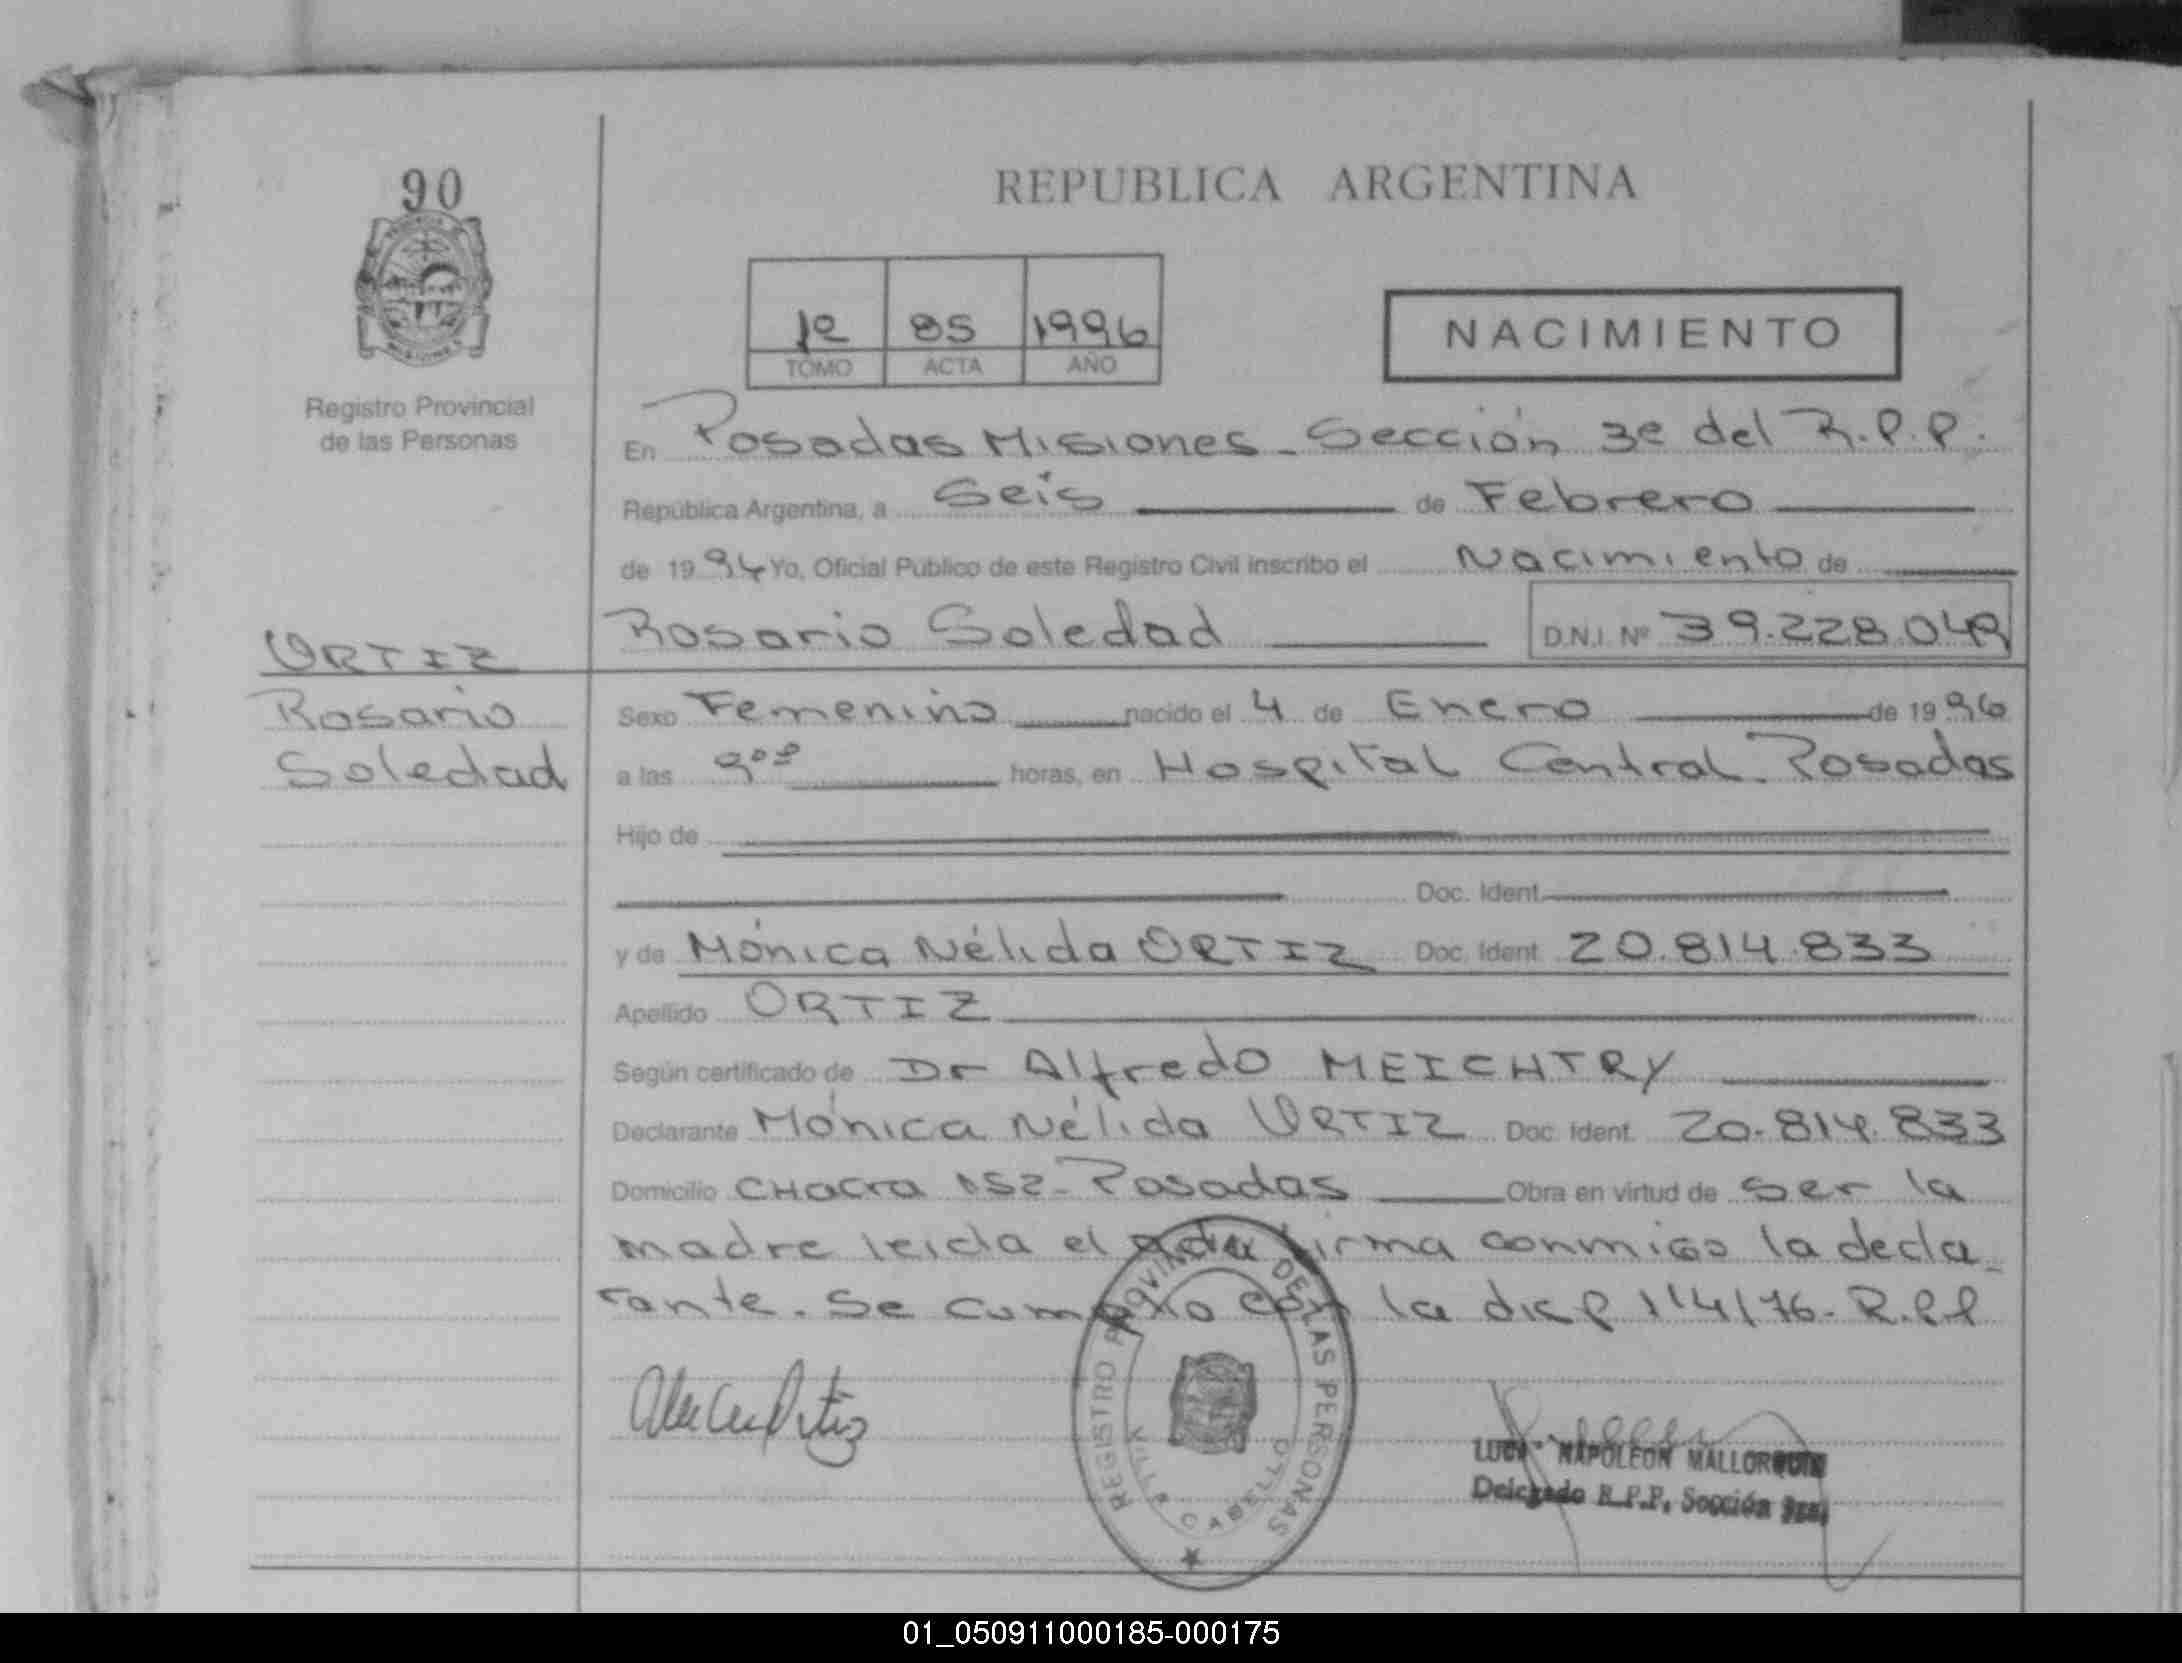 90
REPUBLICA ARGENTINA
1º 85 1996
TOMO ACTA AÑO
NACIMIENTO
Registro Provincial
de las Personas
En Posadas Misiones - Sección 3º del R.P.P.
República Argentina, a Seis de Febrero
de 1996 Yo, Oficial Público de este Registro Civil inscribo el Nacimiento de
Rosario Soledad D.N.I. Nº 39.228.049
ORTIZ
Rosario
Soledad
Sexo Femenino nacido el 4 de Enero de 1996
a las 9 horas, en Hospital Central - Posadas
Hijo de
Doc. Ident.
y de Mónica Nélida ORTIZ Doc. Ident. 20.814.833
Apellido ORTIZ
Según certificado de Dr Alfredo MEICHTRY
Declarante Mónica Nélida ORTIZ Doc. Ident. 20.814.833
Domicilio CHacra 152 - Posadas Obra en virtud de ser la
madre leida el acta firma conmigo la decla-
rante. Se cumplio con la disp 114/76 - R.P.P
Ortiz
REGISTRO PROVINCIAL DE LAS PERSONAS
VILLA CABELLO
NAPOLEON MALLORQUIN
Delegado R.P.P. Sección
01_050911000185-000175